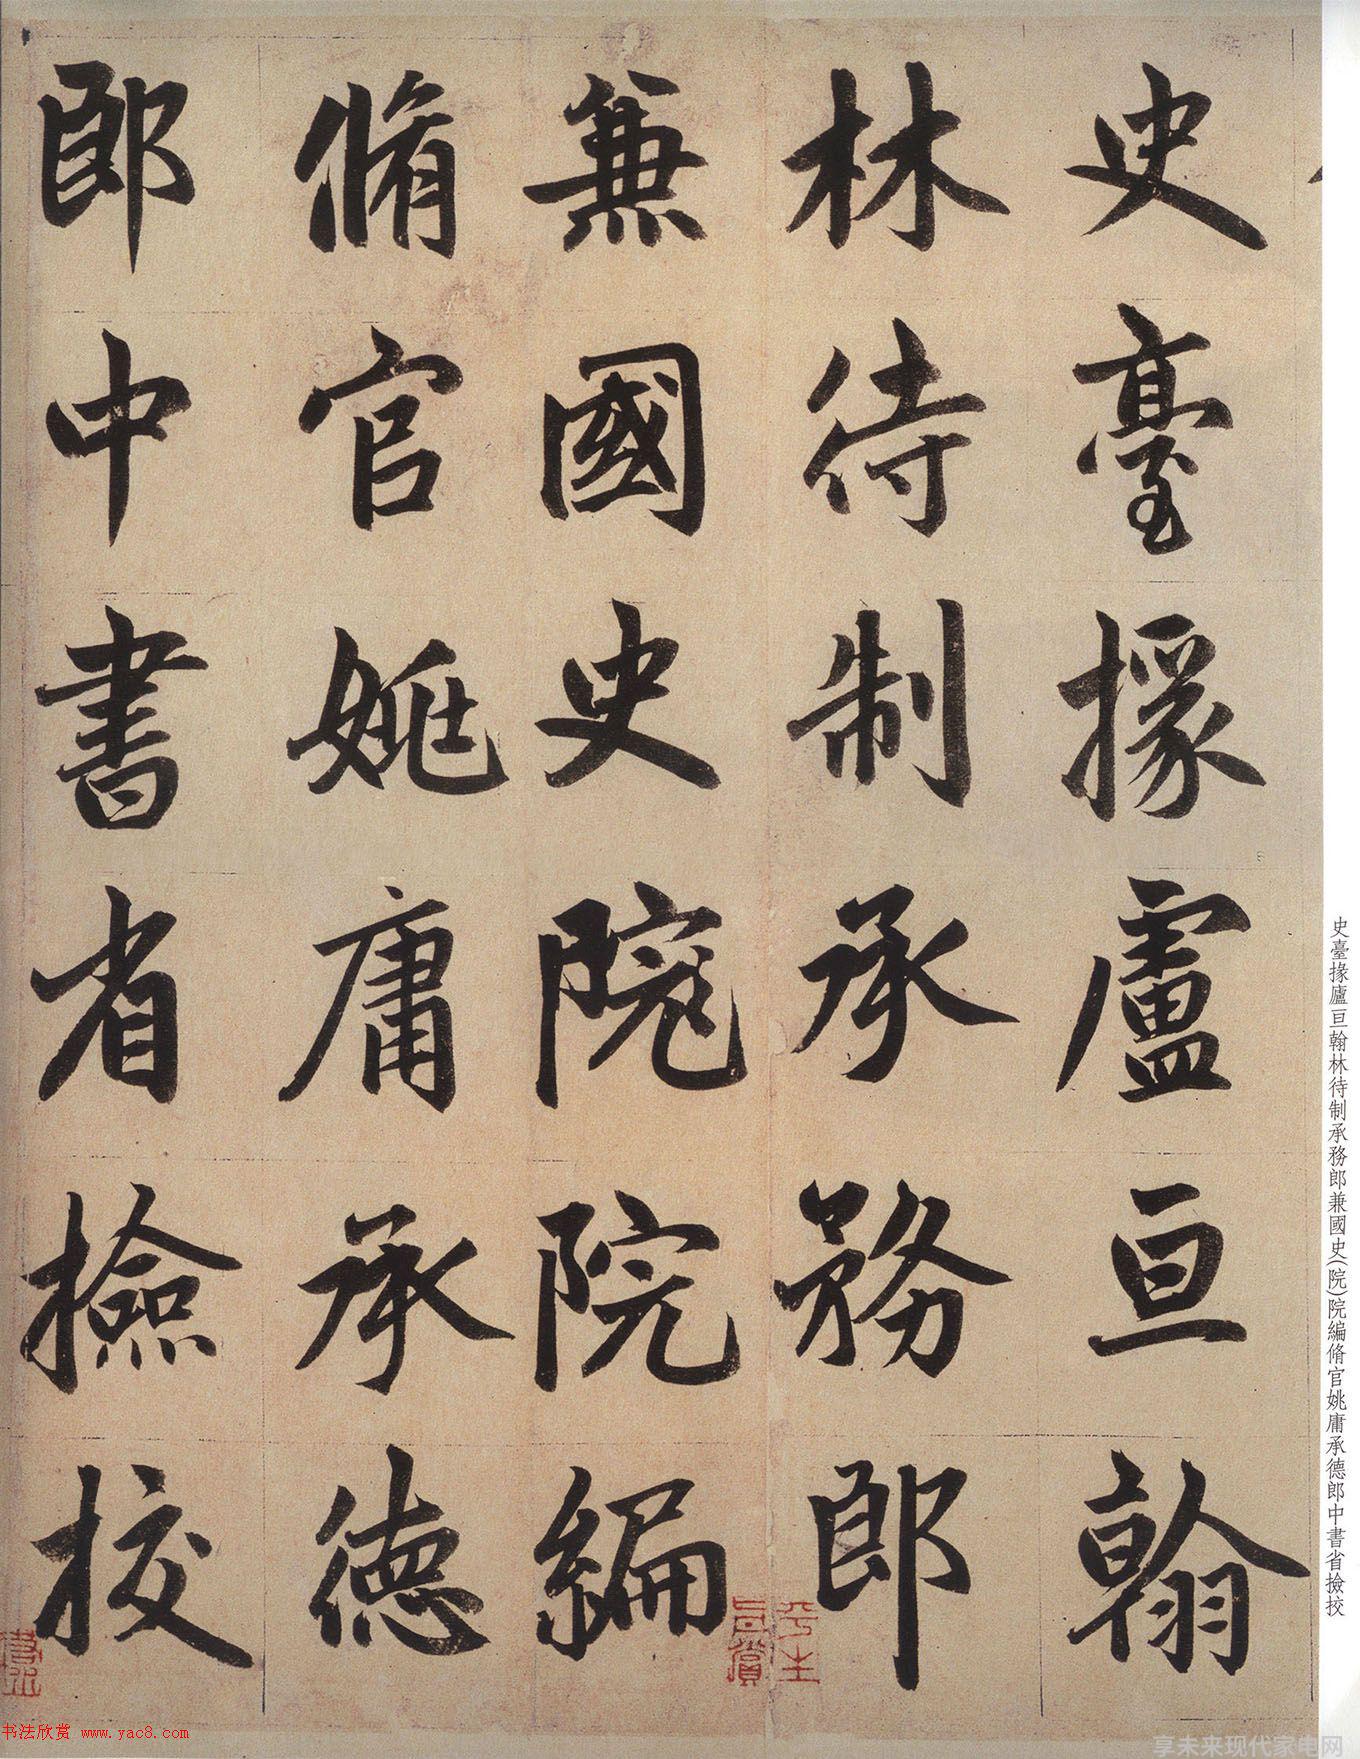 史臺掾盧亘翰
林待制承務郎
兼國史院院編
脩官姚庸承德
郎中書省撿挍
史臺掾廬亘翰林待制承務郎兼國史(院)院編脩官姚庸承德郎中書省撿挍
平生
真賞
书法欣赏 www.yac8.com
享未来现代家电网